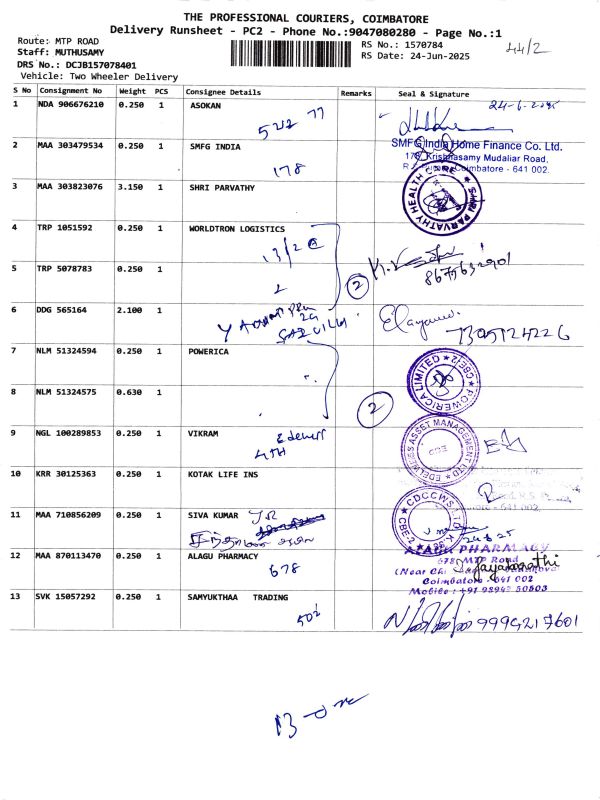 THE PROFESSIONAL COURIERS, COIMBATORE
Delivery Runsheet - PC2 - Phone No.:9047080280 - Page No.:1
Route: MTP ROAD
RS No.: 1570784
44/2
Staff: MUTHUSAMY
RS Date: 24-Jun-2025
DRS No.: DCJB157078401
Vehicle: Two Wheeler Delivery
S No Consignment No Weight PCS Consignee Details Remarks Seal & Signature
1 NDA 906676210 0.250 1 ASOKAN
24-6-2025
2 MAA 303479534 0.250 1 SMFG INDIA
SMFG India Home Finance Co. Ltd.
178, Krishnasamy Mudaliar Road,
Coimbatore - 641 002.
178
3 MAA 303823076 3.150 1 SHRI PARVATHY
SHRI PARVATHY HEALTH CARE
4 TRP 1051592 0.250 1 WORLDTRON LOGISTICS
5 TRP 5078783 0.250 1
2
6 DDG 565164 2.100 1
7 NLM 51324594 0.250 1 POWERICA
POWERICA LIMITED CBE/2
8 NLM 51324575 0.630 1
2
9 NGL 100289853 0.250 1 VIKRAM
EDELWEISS ASSET MANAGEMENT LTD
CBE
10 KRR 30125363 0.250 1 KOTAK LIFE INS
11 MAA 710856209 0.250 1 SIVA KUMAR
CBE-2
12 MAA 870113470 0.250 1 ALAGU PHARMACY
678
ALAGU PHARMACY
678 MTP Road
Coimbatore - 641 002
Mobile : +91 98942 50503
13 SVK 15057292 0.250 1 SAMYUKTHAA TRADING
502
9994217601